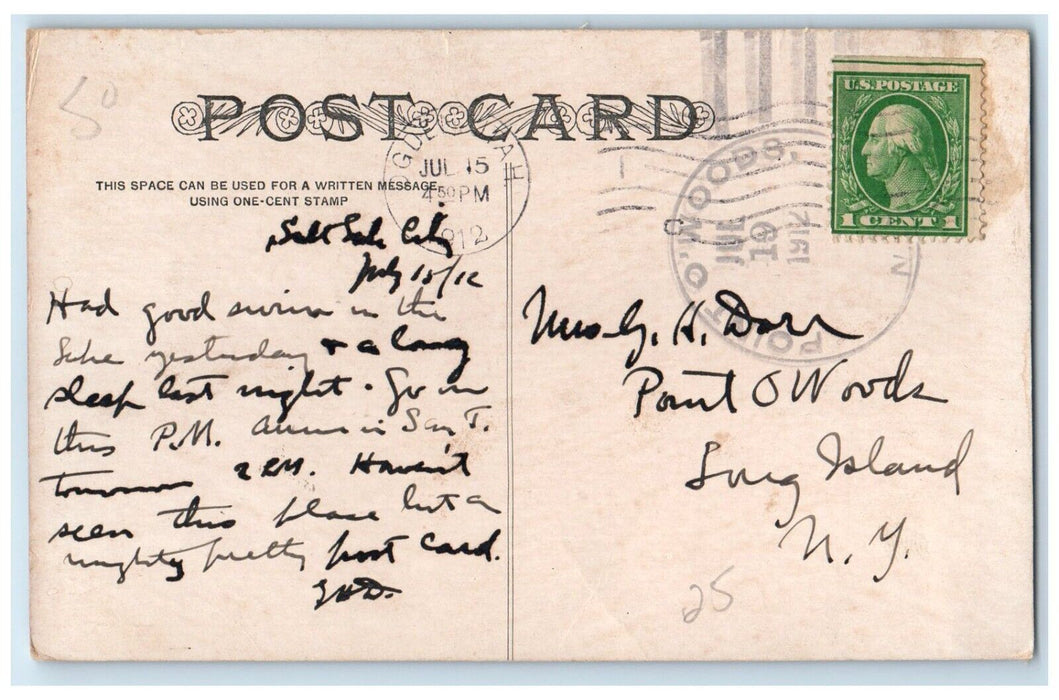 50
POST CARD
THIS SPACE CAN BE USED FOR A WRITTEN MESSAGE
USING ONE-CENT STAMP
OGDEN UTAH
JUL 15
4 50 PM
1912
POINT O'WOODS, N
JUL
19
1912
U.S. POSTAGE
1 CENT 1
Salt Lake City
July 15/12
Had good swim in the
Lake yesterday & a long
sleep last night. Go on
this P.M. Arrive in San F.
tomorrow 2 P.M. Haven't
seen this place but a
mighty pretty post card.
G H D.
Mrs G. H. Dorr
Point O Woods
Long Island
N. Y.
25